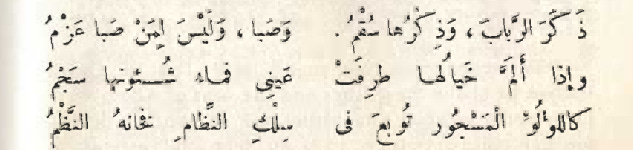 ذَكَرَ الرَّبابَ ، وَذِكْرُها سُقْمُ . وَصَبا ، وَلَيْسَ لِمَنْ صَبا عَزْمُ
وإذا أَلَمَّ خَيالُها طرِفَتْ عَينِى فماء شُـئونها سَجْمُ
كاللولُوِّ الْمَسْجُور تُوبعَ فى سِلْكِ النَّظام نفانهُ النَّظْمُ